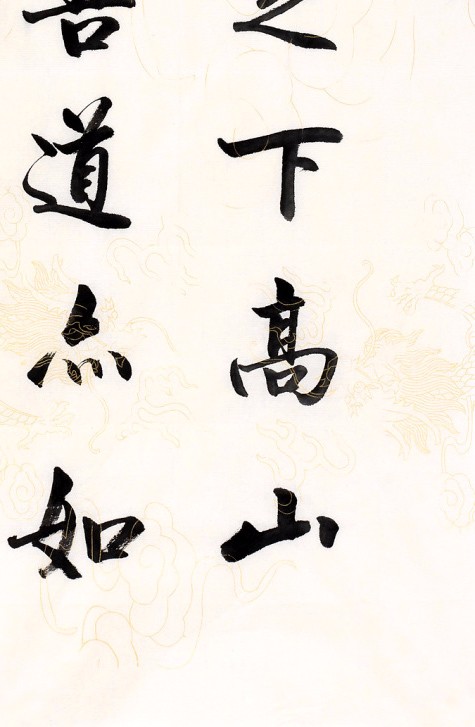 之下高山
道亦如